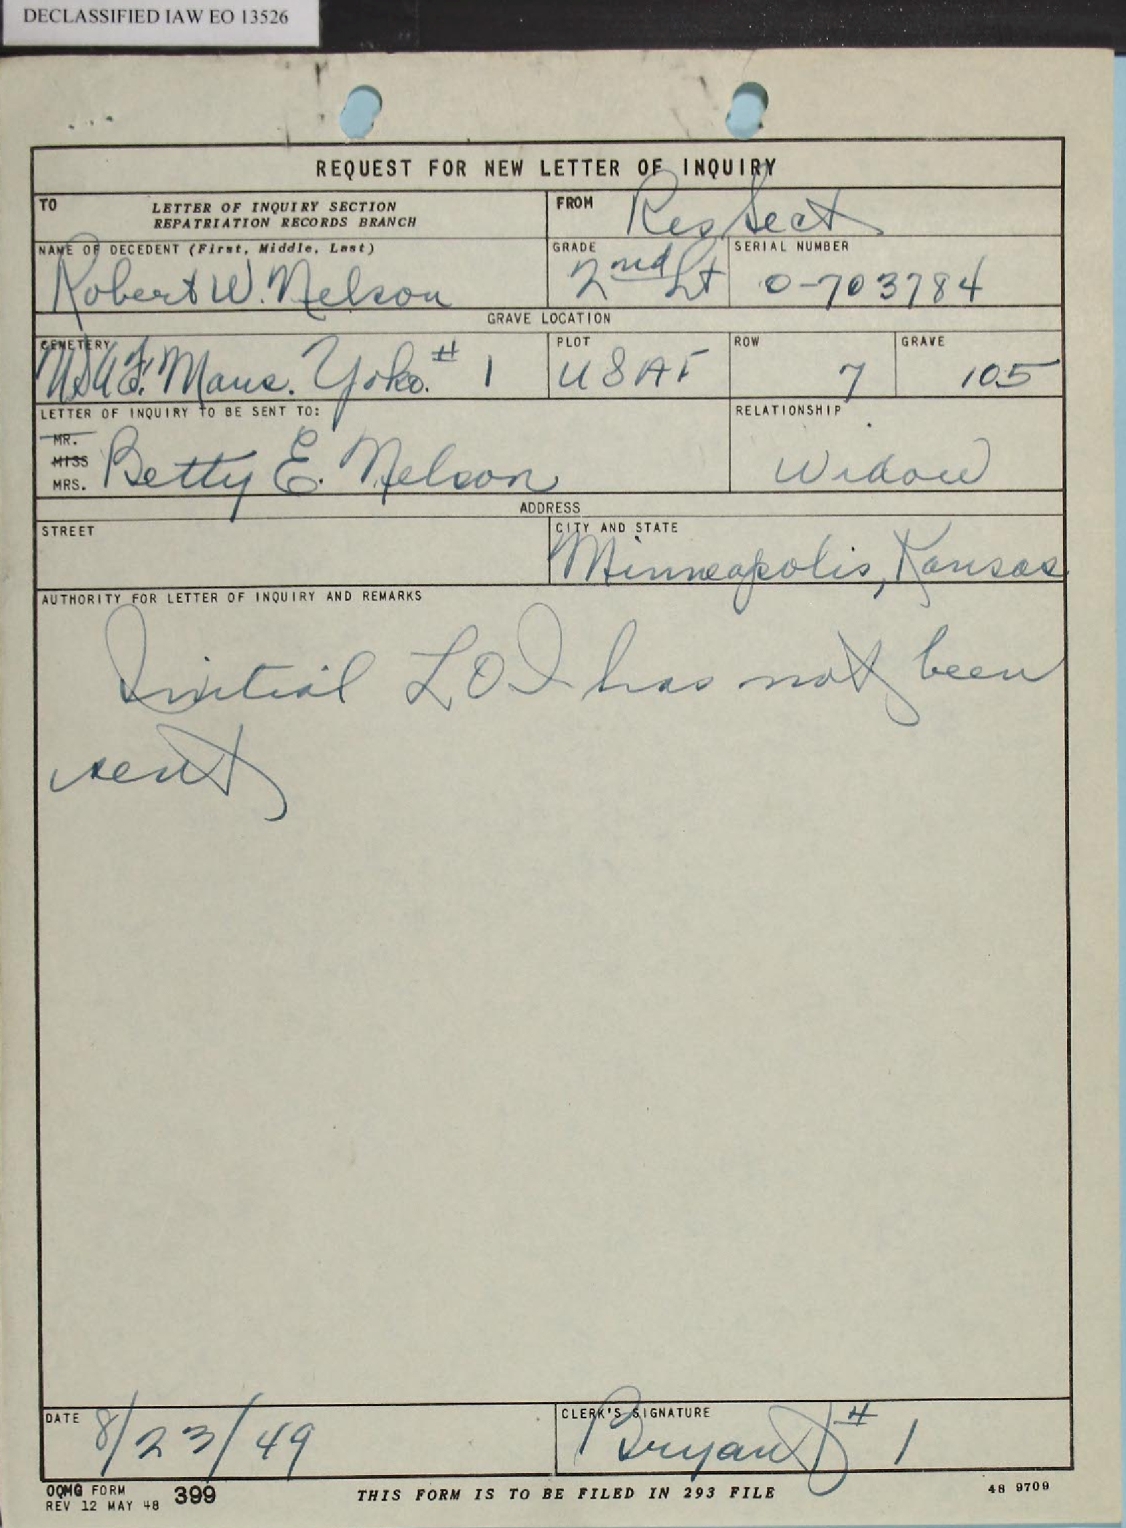 DECLASSIFIED IAW EO 13526
REQUEST FOR NEW LETTER OF INQUIRY
TO LETTER OF INQUIRY SECTION
REPATRIATION RECORDS BRANCH
FROM Res Sect
NAME OF DECEDENT (First, Middle, Last)
Robert W. Nelson
GRADE
2nd Lt
SERIAL NUMBER
O-703784
GRAVE LOCATION
CEMETERY
USAF. Maus. Yoko. # 1
PLOT
USAF
ROW
7
GRAVE
105
LETTER OF INQUIRY TO BE SENT TO:
MR.
MISS
MRS. Betty E. Nelson
RELATIONSHIP
Widow
ADDRESS
STREET
CITY AND STATE
Minneapolis, Kansas
AUTHORITY FOR LETTER OF INQUIRY AND REMARKS
Initial LOI has not been
sent
DATE 8/23/49
CLERK'S SIGNATURE
Bryant # 1
OQMG FORM
REV 12 MAY 48 399
THIS FORM IS TO BE FILED IN 293 FILE
48 9709